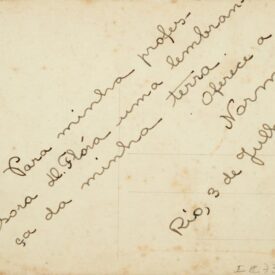 Para minha profes-
sora d. Flóra uma lembran-
ça da minha terra
Oferece a
Norm
Rio, 3 de Julh